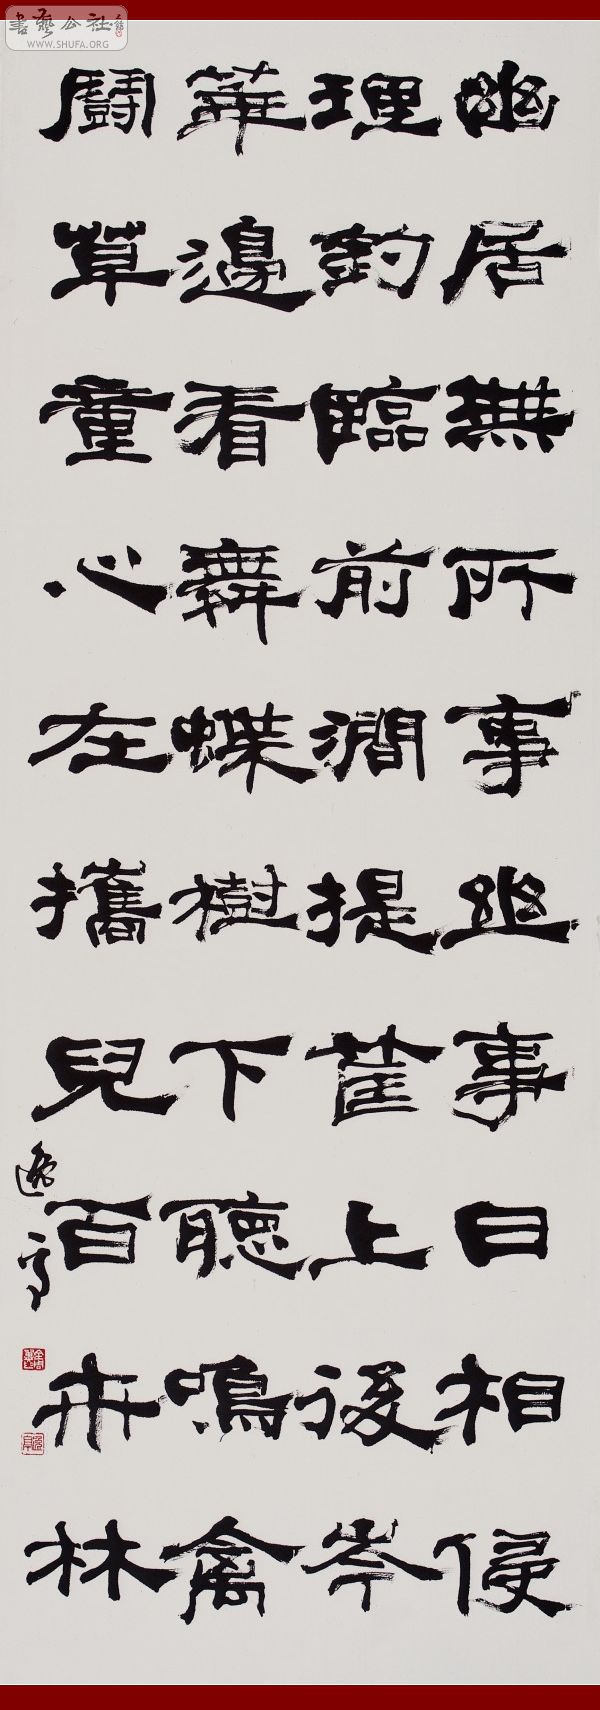 書藝公社
WWW.SHUFA.ORG
幽居無所事幽事日相侵
理釣臨前澗提筐上後岑
華邊看舞蝶樹下聽鳴禽
鬪草童心在攜兒百卉林